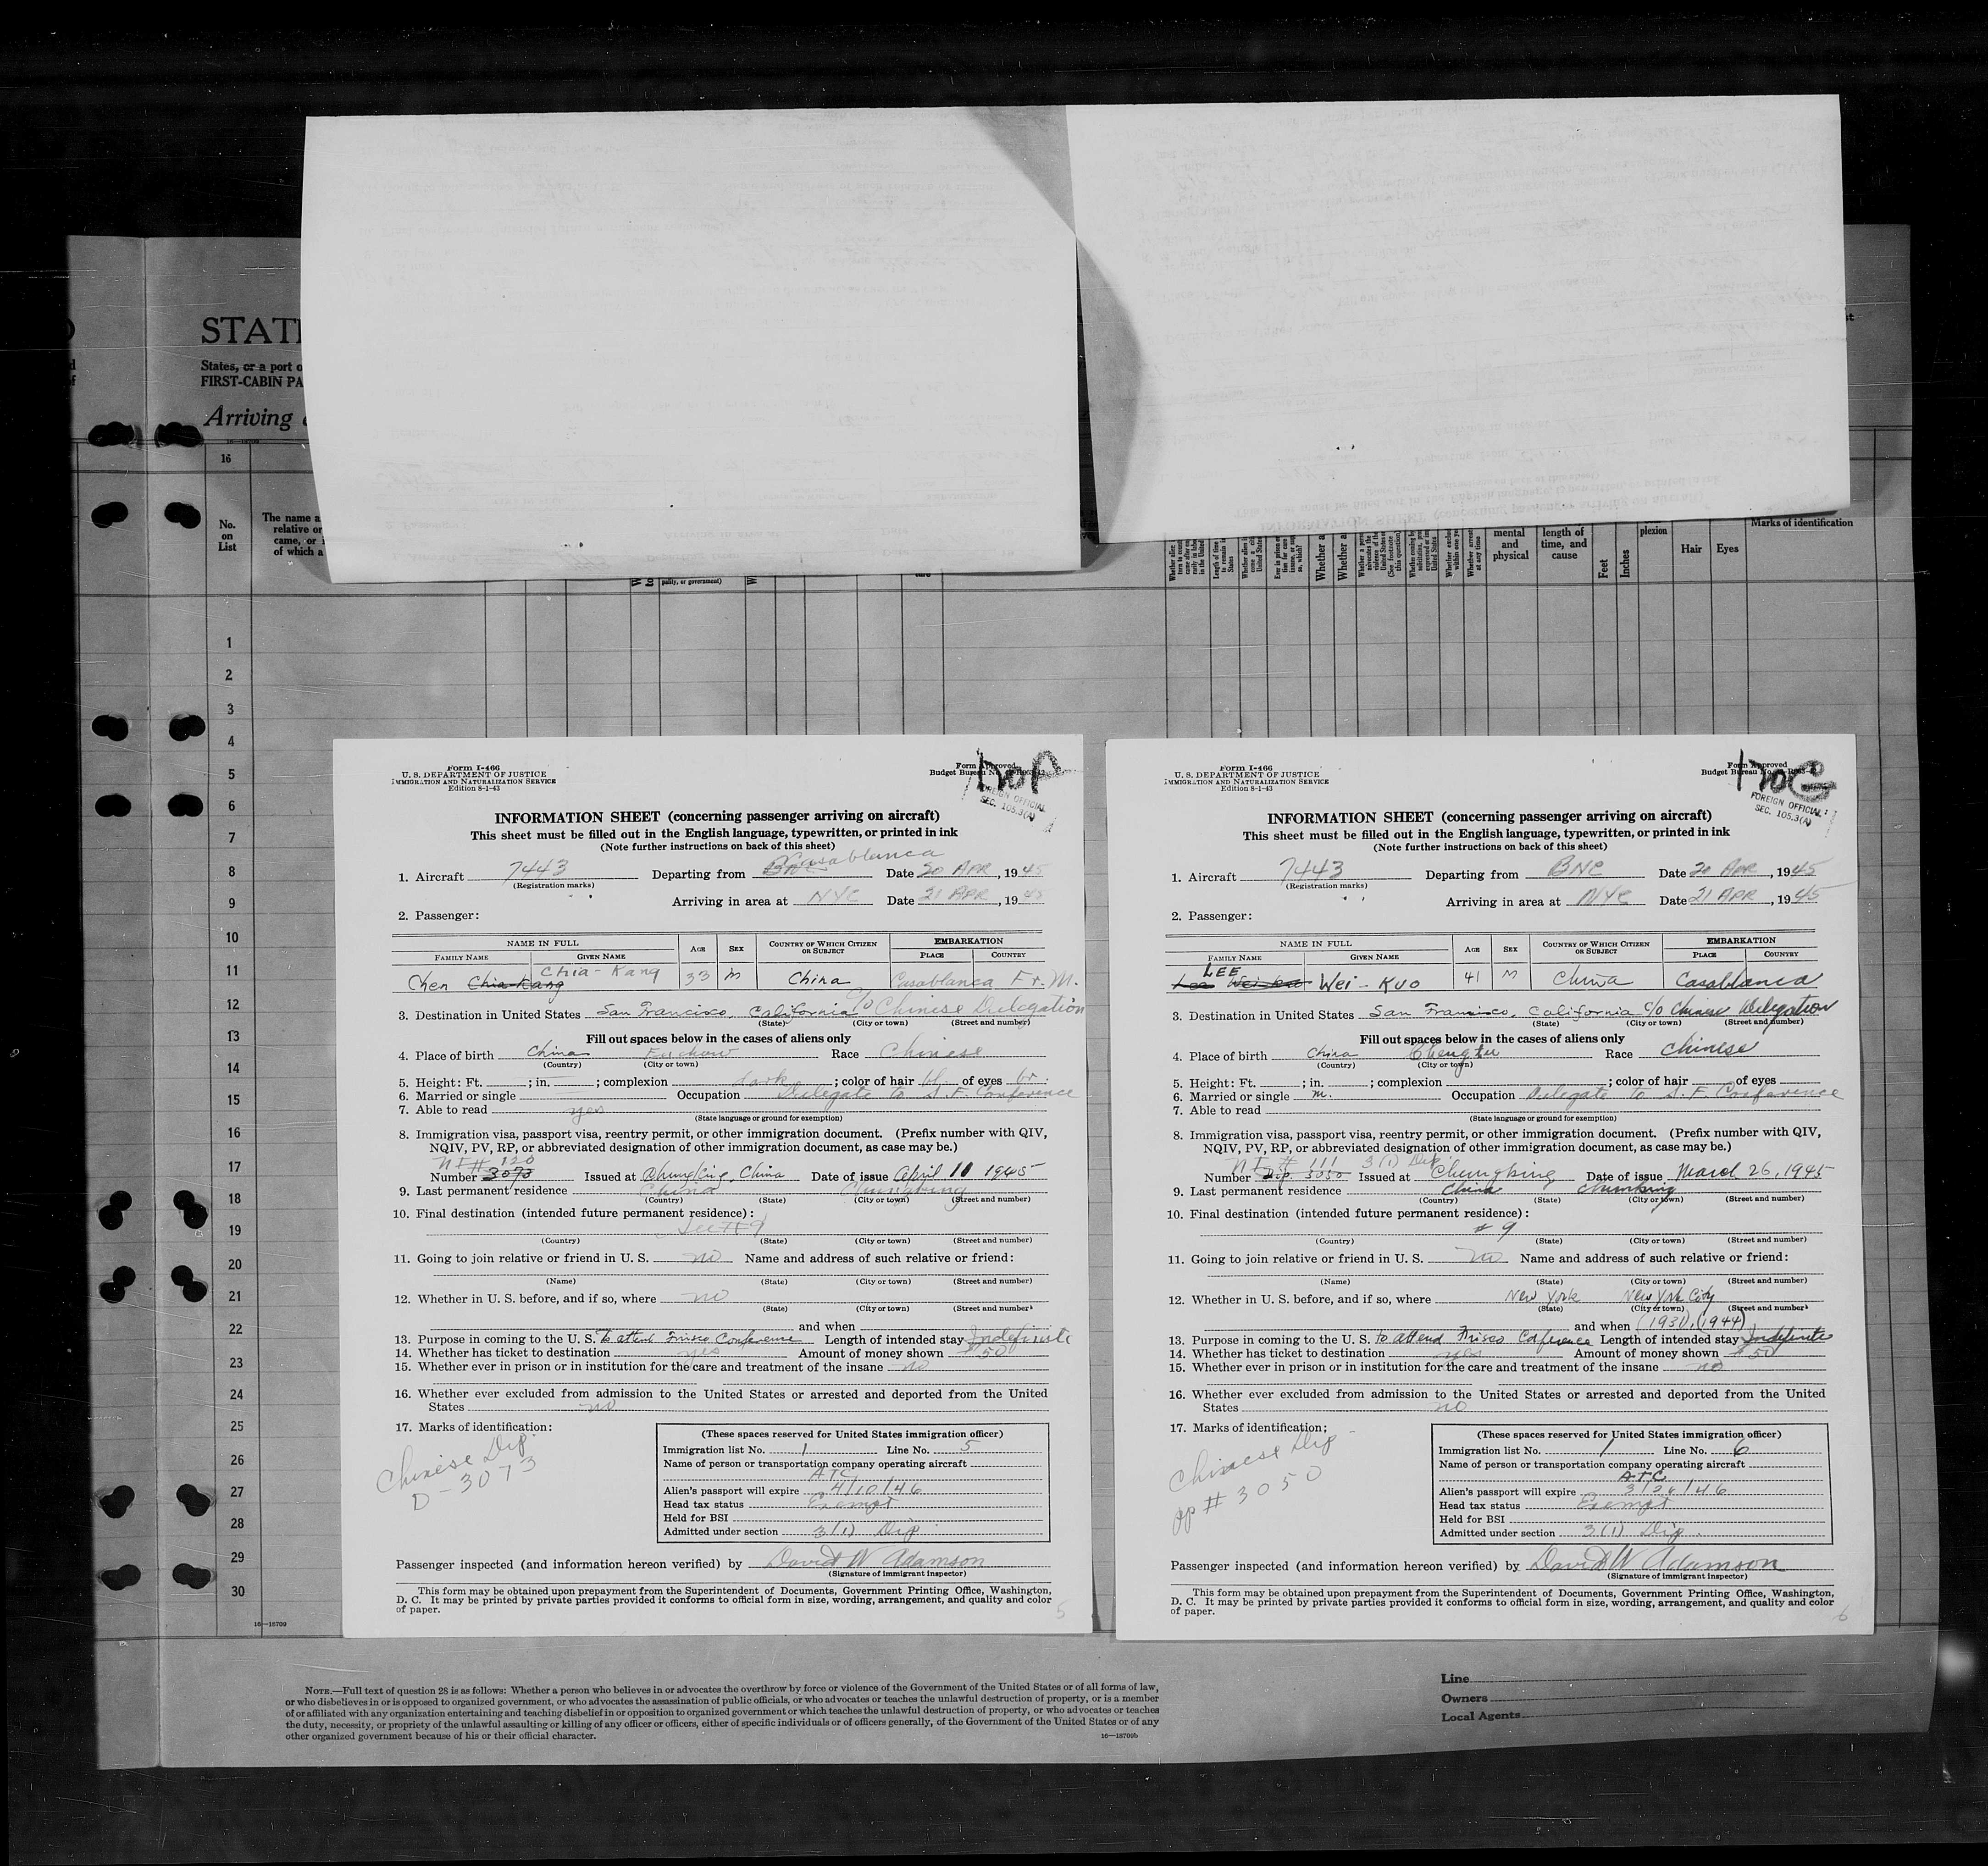 STATE
States, or a port o
FIRST-CABIN PA
Arriving
16
No.
on
List
The name a
relative or
came, or
of which a
pality, or government)
mental
and
physical
length of
time, and
cause
Feet
Inches
plexion
Hair
Eyes
Marks of identification
1
2
3
4
5
6
7
8
9
10
11
12
13
14
15
16
17
18
19
20
21
22
23
24
25
26
27
28
29
30
16—18709
Form I-466
U. S. DEPARTMENT OF JUSTICE
IMMIGRATION AND NATURALIZATION SERVICE
Edition 8-1-43
Form Approved
Budget Bureau No.
FOREIGN OFFICIAL
SEC. 105.3(A)
INFORMATION SHEET (concerning passenger arriving on aircraft)
This sheet must be filled out in the English language, typewritten, or printed in ink
(Note further instructions on back of this sheet)
1. Aircraft 7443 Departing from BNC Casablanca Date 20 APR, 1945
(Registration marks)
Arriving in area at NYC Date 21 APR, 1945
2. Passenger:
NAME IN FULL AGE SEX COUNTRY OF WHICH CITIZEN OR SUBJECT EMBARKATION
FAMILY NAME GIVEN NAME PLACE COUNTRY
Chen Chia-Kang Chia-Kang 33 M China Casablanca Fr. M.
3. Destination in United States San Francisco, California c/o Chinese Delegation
(State) (City or town) (Street and number)
Fill out spaces below in the cases of aliens only
4. Place of birth China Fuchow Race Chinese
(Country) (City or town)
5. Height: Ft. ; in. ; complexion dark ; color of hair bl. of eyes br.
6. Married or single Occupation Delegate to S. F. Conference
7. Able to read yes
(State language or ground for exemption)
8. Immigration visa, passport visa, reentry permit, or other immigration document. (Prefix number with QIV,
NQIV, PV, RP, or abbreviated designation of other immigration document, as case may be.)
NI # 120
Number 3073 Issued at Chungking, China Date of issue April 11 1945
9. Last permanent residence China Chungking
(Country) (State) (City or town) (Street and number)
10. Final destination (intended future permanent residence):
See #9
(Country) (State) (City or town) (Street and number)
11. Going to join relative or friend in U. S. no Name and address of such relative or friend:
(Name) (State) (City or town) (Street and number)
12. Whether in U. S. before, and if so, where no
(State) (City or town) (Street and number)
and when
13. Purpose in coming to the U. S. to attend Frisco Conference Length of intended stay Indefinite
14. Whether has ticket to destination yes Amount of money shown $50
15. Whether ever in prison or in institution for the care and treatment of the insane no
16. Whether ever excluded from admission to the United States or arrested and deported from the United
States no
17. Marks of identification:
Chinese Dip.
D-3073
(These spaces reserved for United States immigration officer)
Immigration list No. 1 Line No. 5
Name of person or transportation company operating aircraft
ATC
Alien's passport will expire 4/10/46
Head tax status Exempt
Held for BSI
Admitted under section 3(1) Dip.
Passenger inspected (and information hereon verified) by David W Adamson
(Signature of immigrant inspector)
This form may be obtained upon prepayment from the Superintendent of Documents, Government Printing Office, Washington,
D. C. It may be printed by private parties provided it conforms to official form in size, wording, arrangement, and quality and color
of paper.
5
Form I-466
U. S. DEPARTMENT OF JUSTICE
IMMIGRATION AND NATURALIZATION SERVICE
Edition 8-1-43
Form Approved
Budget Bureau No.
FOREIGN OFFICIAL
SEC. 105.3(A)
INFORMATION SHEET (concerning passenger arriving on aircraft)
This sheet must be filled out in the English language, typewritten, or printed in ink
(Note further instructions on back of this sheet)
1. Aircraft 7443 Departing from BNC Date 20 APR, 1945
(Registration marks)
Arriving in area at NYC Date 21 APR, 1945
2. Passenger:
NAME IN FULL AGE SEX COUNTRY OF WHICH CITIZEN OR SUBJECT EMBARKATION
FAMILY NAME GIVEN NAME PLACE COUNTRY
LEE
Lee Wei-Kuo Wei-Kuo 41 M China Casablanca
3. Destination in United States San Francisco, California c/o Chinese Delegation
(State) (City or town) (Street and number)
Fill out spaces below in the cases of aliens only
4. Place of birth China Chengtu Race Chinese
(Country) (City or town)
5. Height: Ft. ; in. ; complexion ; color of hair of eyes
6. Married or single m. Occupation Delegate to S. F. Conference
7. Able to read
(State language or ground for exemption)
8. Immigration visa, passport visa, reentry permit, or other immigration document. (Prefix number with QIV,
NQIV, PV, RP, or abbreviated designation of other immigration document, as case may be.)
NI # 111 3(1) Dip.
Number Dip. 3050 Issued at Chungking Date of issue March 26, 1945
9. Last permanent residence China Chunking
(Country) (State) (City or town) (Street and number)
10. Final destination (intended future permanent residence):
# 9
(Country) (State) (City or town) (Street and number)
11. Going to join relative or friend in U. S. no Name and address of such relative or friend:
(Name) (State) (City or town) (Street and number)
12. Whether in U. S. before, and if so, where New York New York City
(State) (City or town) (Street and number)
and when (1930), (1944)
13. Purpose in coming to the U. S. to attend Frisco Conference Length of intended stay Indefinite
14. Whether has ticket to destination yes Amount of money shown $50
15. Whether ever in prison or in institution for the care and treatment of the insane no
16. Whether ever excluded from admission to the United States or arrested and deported from the United
States no
17. Marks of identification:
Chinese Dip
pp # 3050
(These spaces reserved for United States immigration officer)
Immigration list No. 1 Line No. 6
Name of person or transportation company operating aircraft
ATC
Alien's passport will expire 3/26/46
Head tax status Exempt
Held for BSI
Admitted under section 3(1) Dip.
Passenger inspected (and information hereon verified) by David W Adamson
(Signature of immigrant inspector)
This form may be obtained upon prepayment from the Superintendent of Documents, Government Printing Office, Washington,
D. C. It may be printed by private parties provided it conforms to official form in size, wording, arrangement, and quality and color
of paper.
6
NOTE.—Full text of question 28 is as follows: Whether a person who believes in or advocates the overthrow by force or violence of the Government of the United States or of all forms of law,
or who disbelieves in or is opposed to organized government, or who advocates the assassination of public officials, or who advocates or teaches the unlawful destruction of property, or is a member
of or affiliated with any organization entertaining and teaching disbelief in or opposition to organized government or which teaches the unlawful destruction of property, or who advocates or teaches
the duty, necessity, or propriety of the unlawful assaulting or killing of any officer or officers, either of specific individuals or of officers generally, of the Government of the United States or of any
other organized government because of his or their official character.
16—18709b
Line
Owners
Local Agents